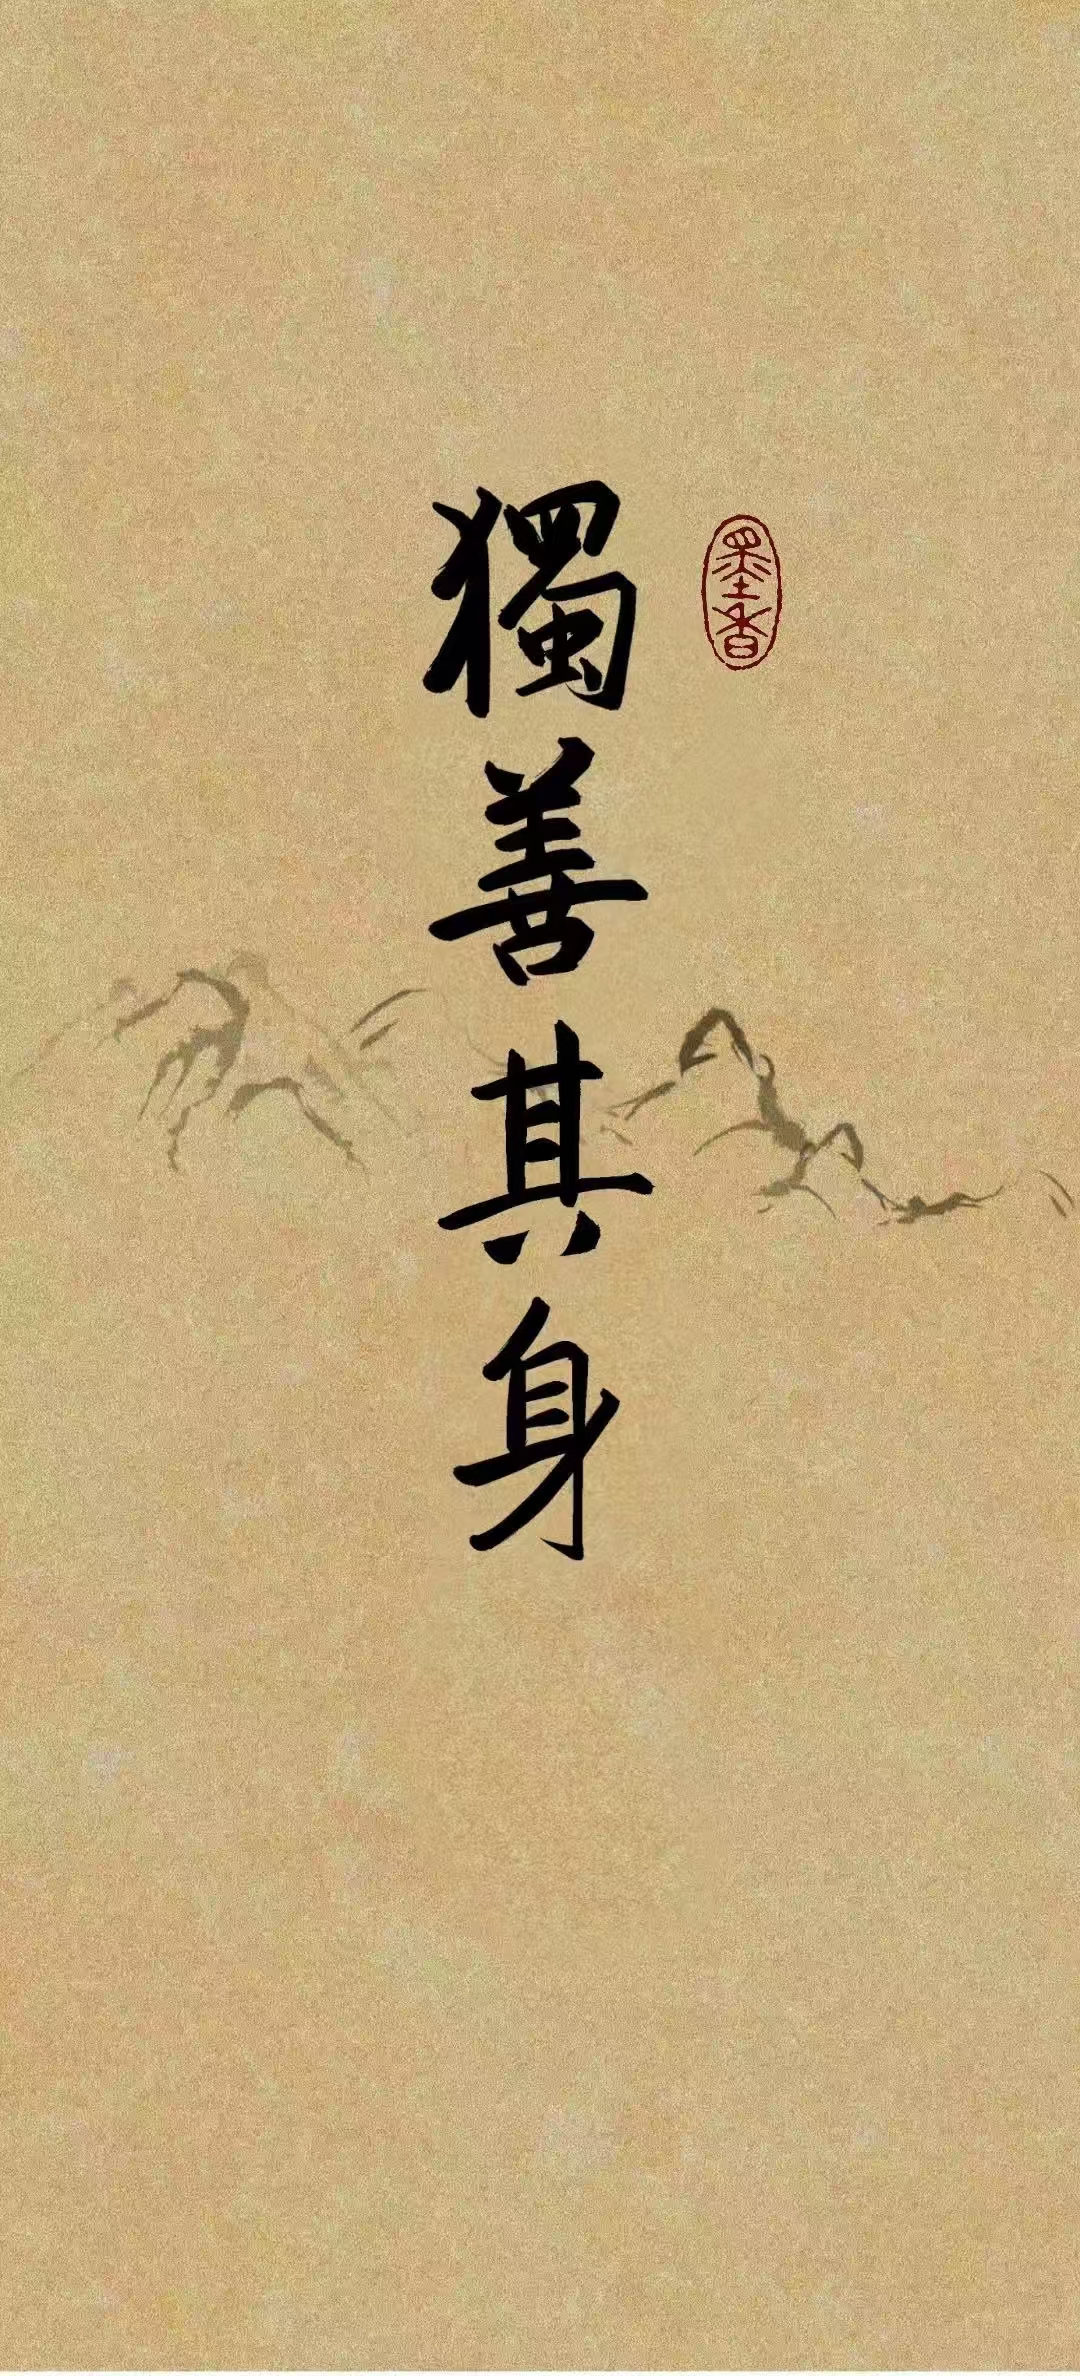 獨善其身
墨香